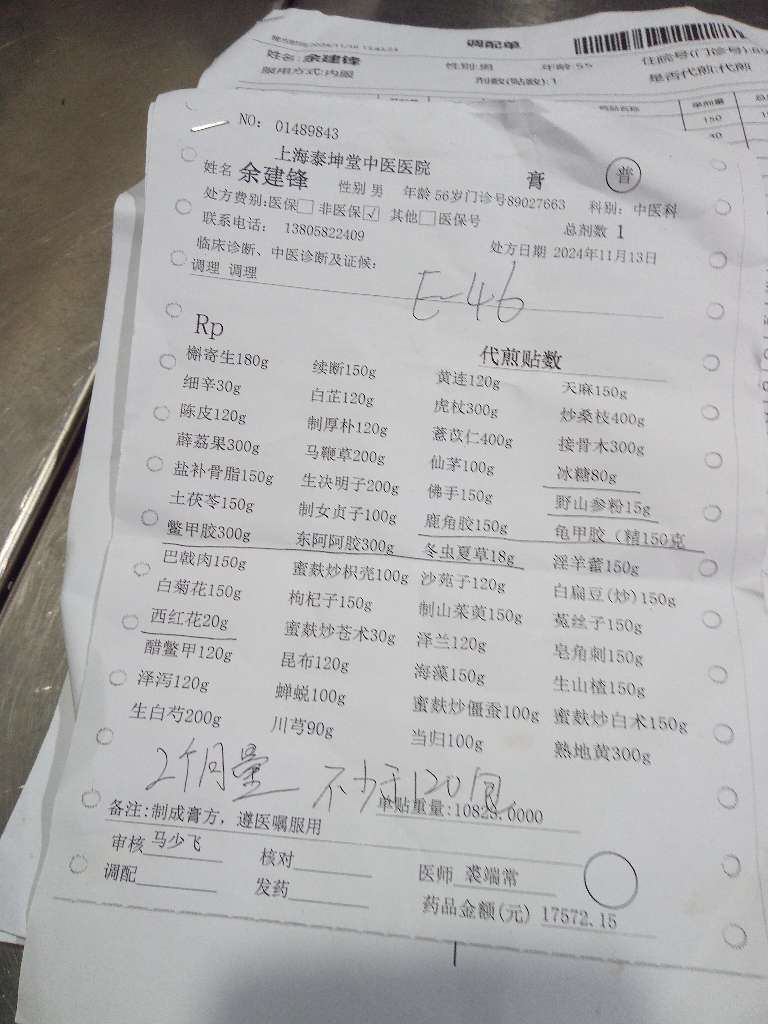 调配单
姓名:余建锋 性别:男 年龄:55 住院号(门诊号):89
服用方式:内服 剂数(贴数):1 是否代煎:代煎
药品名称 单剂量
150
NO: 01489843
上海泰坤堂中医医院 膏 普
姓名 余建锋 性别 男 年龄 56岁 门诊号89027663 科别: 中医科
处方费别:医保□ 非医保☑ 其他□ 医保号 总剂数 1
联系电话: 13805822409 处方日期 2024年11月13日
临床诊断、中医诊断及证候:
调理 调理
E-46
Rp 代煎贴数
槲寄生180g 续断150g 黄连120g 天麻150g
细辛30g 白芷120g 虎杖300g 炒桑枝400g
陈皮120g 制厚朴120g 薏苡仁400g 接骨木300g
薜荔果300g 马鞭草200g 仙茅100g 冰糖80g
盐补骨脂150g 生决明子200g 佛手150g 野山参粉15g
土茯苓150g 制女贞子100g 鹿角胶150g 龟甲胶（精150克
鳖甲胶300g 东阿阿胶300g 冬虫夏草18g 淫羊藿150g
巴戟肉150g 蜜麸炒枳壳100g 沙苑子120g 白扁豆(炒)150g
白菊花150g 枸杞子150g 制山茱萸150g 菟丝子150g
西红花20g 蜜麸炒苍术30g 泽兰120g 皂角刺150g
醋鳖甲120g 昆布120g 海藻150g 生山楂150g
泽泻120g 蝉蜕100g 蜜麸炒僵蚕100g 蜜麸炒白术150g
生白芍200g 川芎90g 当归100g 熟地黄300g
2个月量 不少于120包
单贴重量:10823.0000
备注:制成膏方，遵医嘱服用
审核 马少飞 核对 医师 裘端常
调配 发药 药品金额(元) 17572.15